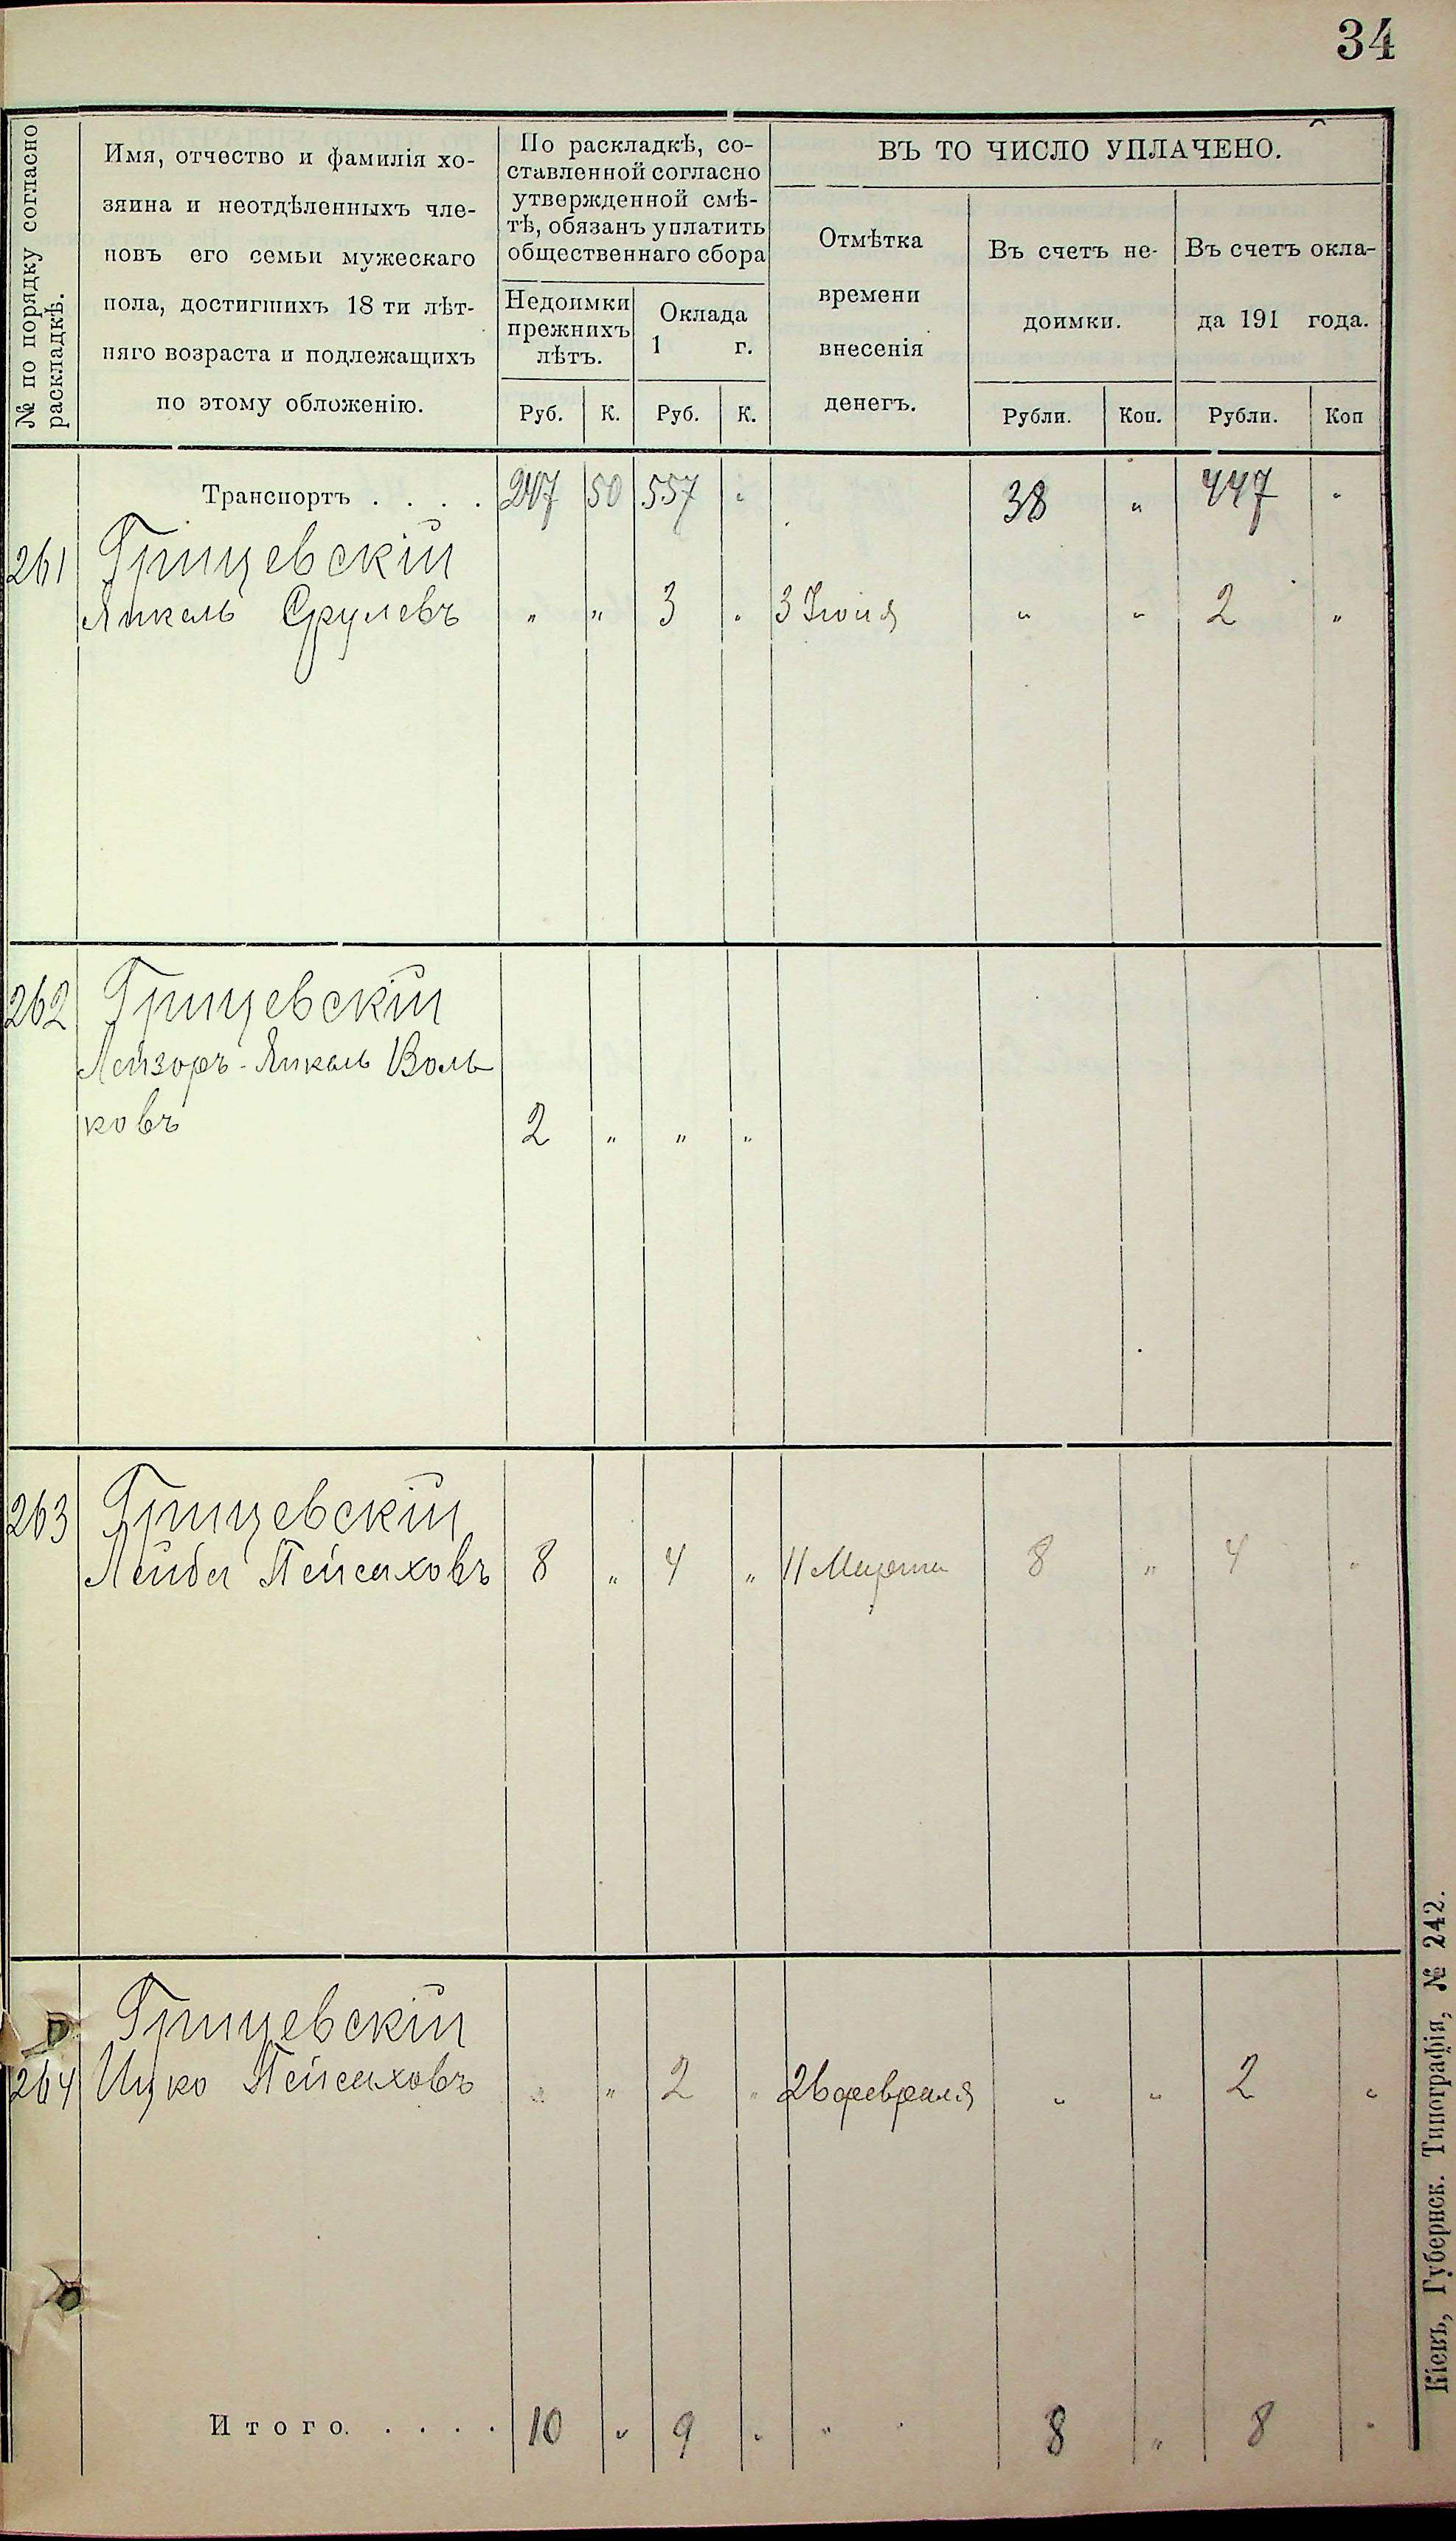 34
№ по порядку согласно
раскладкѣ.
Имя, отчество и фамилія хо-
зяина и неотдѣленныхъ чле-
новъ его семьи мужескаго
пола, достигшихъ 18 ти лѣт-
няго возраста и подлежащихъ
по этому обложенію.
По раскладкѣ, со-
ставленной согласно
утвержденной смѣ-
тѣ, обязанъ уплатить
общественнаго сбора
Недоимки
прежнихъ
лѣтъ.
Оклада
1 г.
Руб. К. Руб. К.
ВЪ ТО ЧИСЛО УПЛАЧЕНО.
Отмѣтка
времени
внесенія
денегъ.
Въ счетъ не-
доимки.
Въ счетъ окла-
да 191 года.
Рубли. Коп. Рубли. Коп
Транспортъ . . . . 247 50 557 " 38 " 447 "
261 Грицевскій
Янкель Срулевъ " " 3 " 3 Іюня " " 2 "
262 Грицевскій
Лейзоръ-Янкель Воль
ковъ 2 " " "
263 Грицевскій
Лейба Пейсаховъ 8 " 4 " 11 Марта 8 " 4 "
Грицевскій
264 Ицко Пейсаховъ " " 2 " 26 февраля " " 2 "
Итого. . . . . 10 " 9 " " 8 " 8 "
Кіевъ, Губернск. Типографія, № 242.